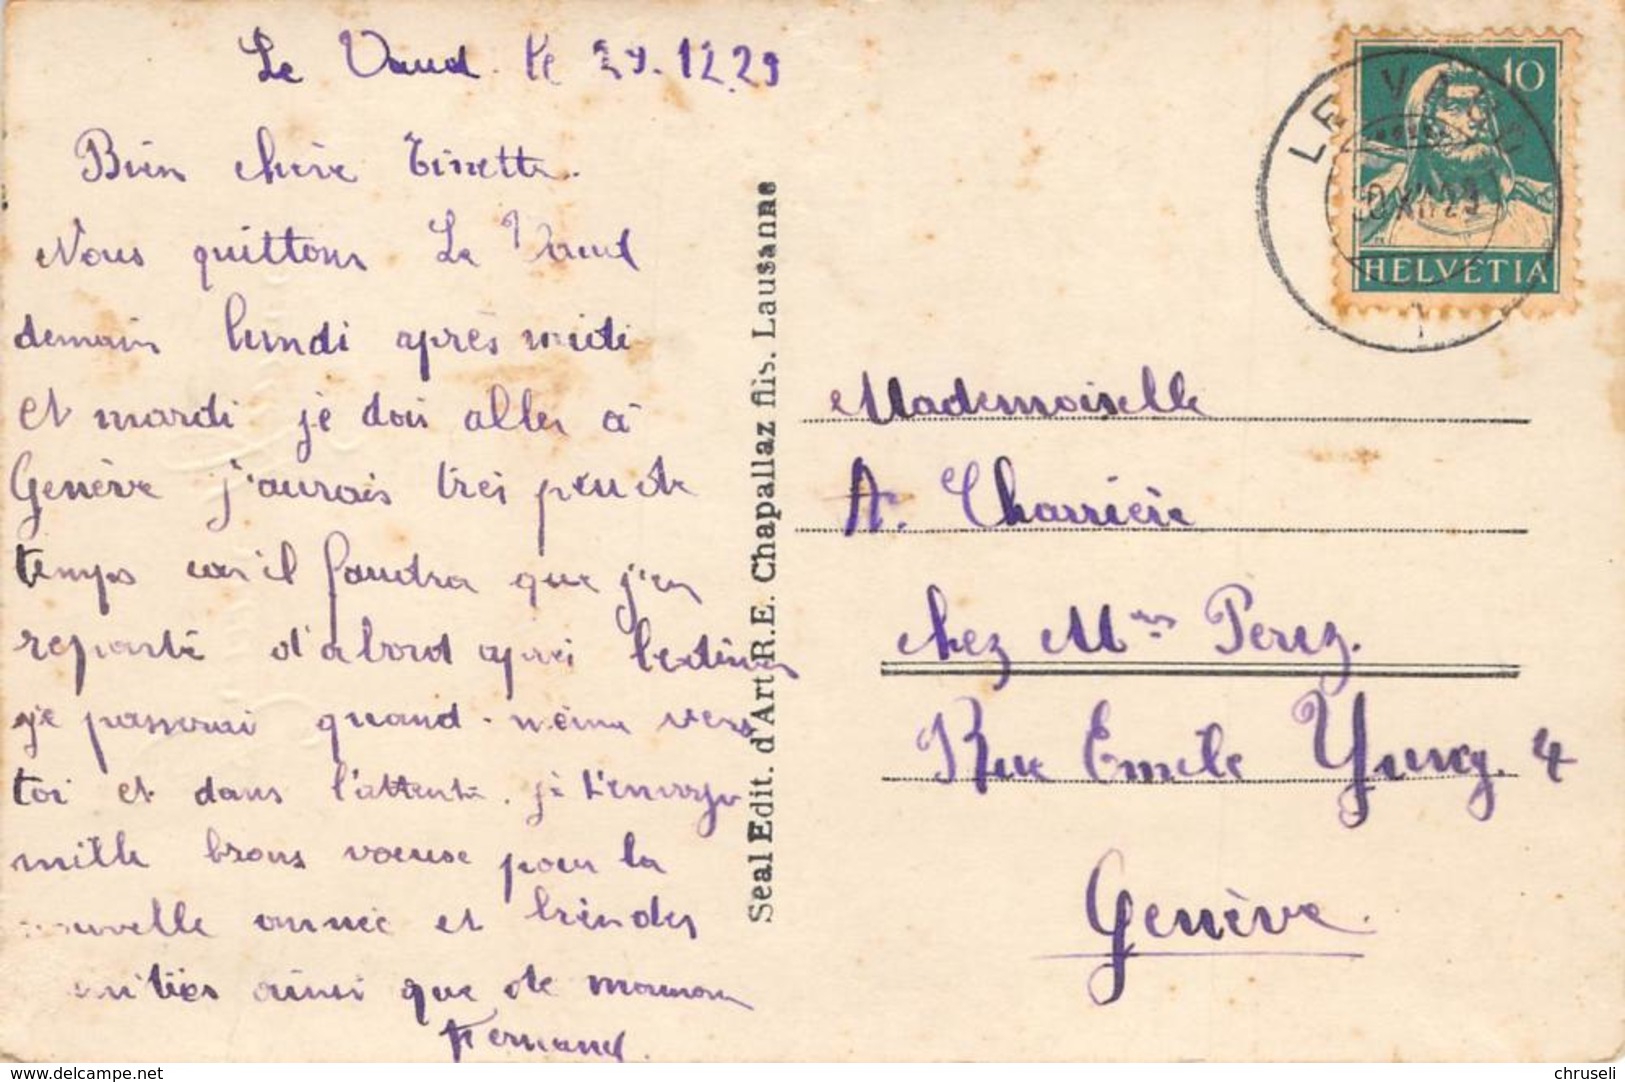 Le Vaud. le 29.12.29
Bien chère Tinette.
Nous quittons Le Vaud
demain lundi après midi
et mardi je dois aller à
Genève j'aurais très peu de
temps car il faudra que j'en
reparte d'abord après
je passerai quand-même vers
toi et dans l'attente je t'envoye
mille bons voeuse pour la
nouvelle année et bien des
amitiés ainsi que de maman
Fernand.
Seal Edit. d'Art R.E. Chapallaz fils. Lausanne
10
HELVETIA
LE VAUD
XII 29
Mademoiselle
A. Charrière
chez Mme Perez.
Rue Emile Yung. 4
Genève.
delcampe.net
chruseli